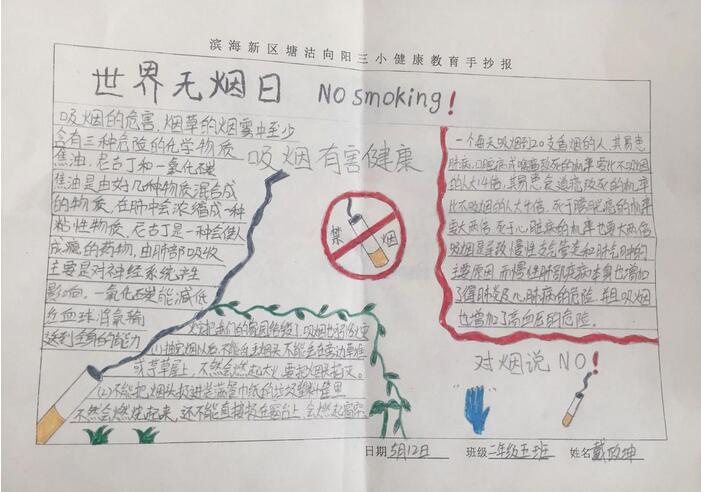 滨海新区塘沽向阳三小健康教育手抄报
世界无烟日 NO smoking!
吸烟的危害,烟草的烟雾中至少
含有三种危险的化学物质
焦油,尼古丁和一氧化碳
焦油是由好几种物质混合成
的物质,在肺中会浓缩成一种
粘性物质,尼古丁是一种会使人
成瘾的药物,由肺部吸收
主要是对神经系统产生
影响,一氧化碳能减低
红血球将氧输
送到全身的能力
吸烟有害健康
禁 烟
一个每天吸烟到20支香烟的人,其易患
肺病,口腔病或喉癌致死的机率要比不吸烟
的人大14倍,其易患食道癌致死的机率
比不吸烟的人大4倍,死于膀胱癌的机率
要大两倍,死于心脏病的机率也要大两倍
吸烟是导致慢性支气管炎和肺气肿的
主要原因,而慢性肺部疾病本身也增加
了得肺炎及心脏病的危险,并且吸烟
也增加了高血压的危险。
(1)抽完烟以后,不能乱丢烟头不能丢在
或芳草屋上,不然会燃起大火,要把烟头
(2)不能把烟头扔进装满
不然会燃烧起来,还不能直接扔在
对烟说NO!
日期 5月12日 班级 二年级五班 姓名 戴